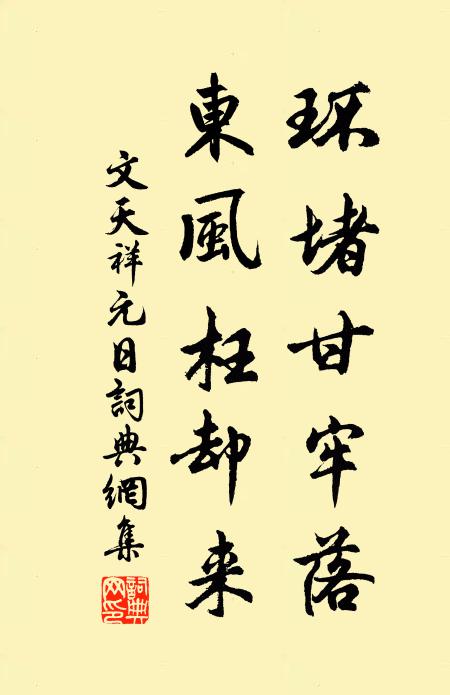 环堵甘牢落
東風枉却来
文天祥元日詞典網集
詞典網印